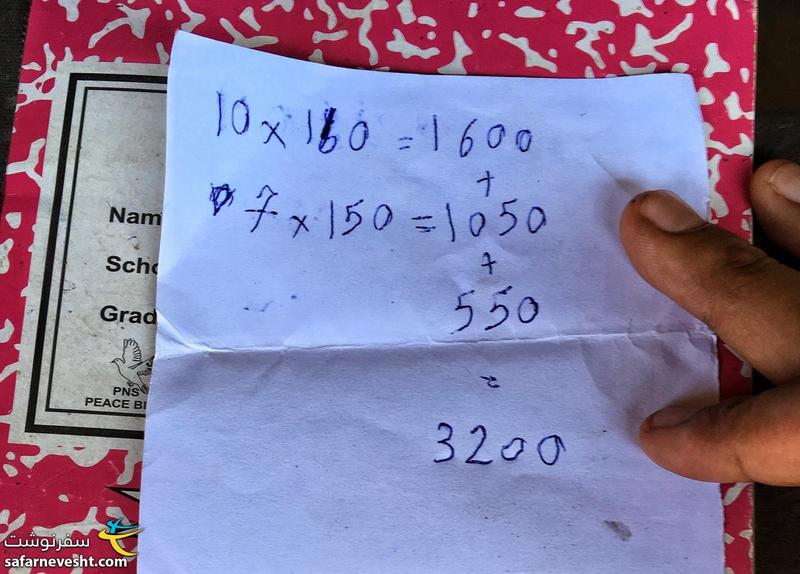 10 x 160 = 1600
+
7 x 150 = 1050
+
550
=
3200
Nam
Scho
Grad
PNS
PEACE BI
سفرنوشت
safarnevesht.com